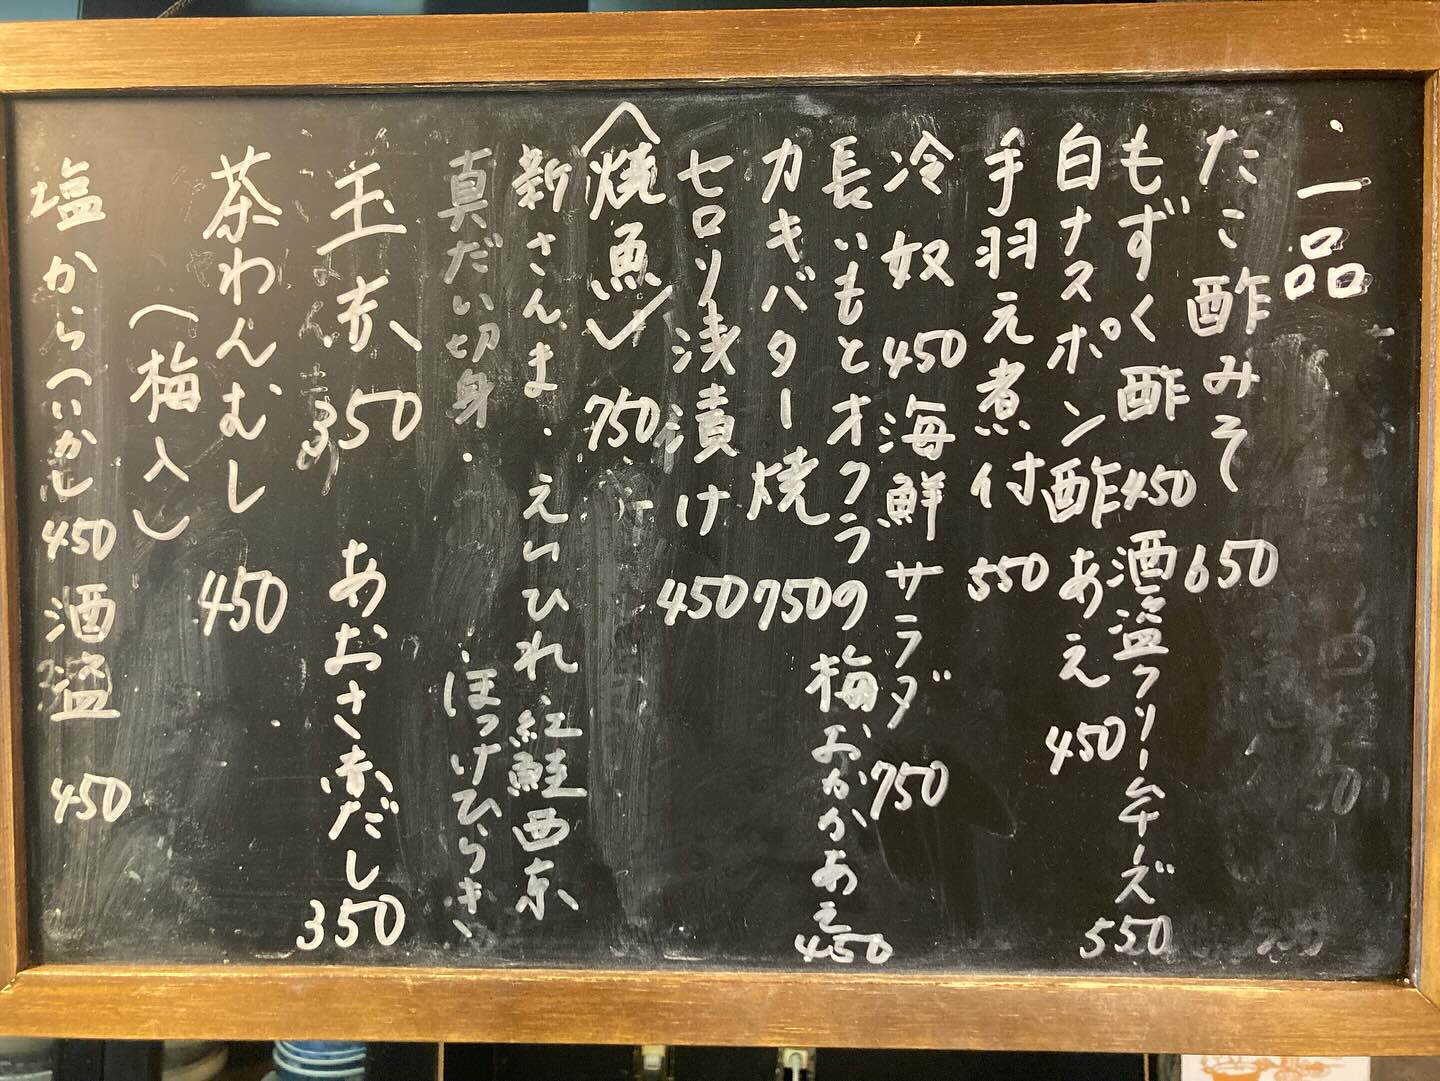 一品
たこ酢みそ 650
もずく酢 450 酒盗クリームチーズ 550
白ナスポン酢あえ 450
手羽元煮付 550
冷奴 450 海鮮サラダ 750
長いもとオクラの梅おかかあえ 450
カキバター焼 750
セロリ浅漬け 450
〈焼魚〉 750
新さんま・えいひれ・紅鮭西京
真だい切身・ほっけひらき
玉赤 350 あおさ赤だし 350
茶わんむし 450
(梅入)
塩から(いか) 450 酒盗 450